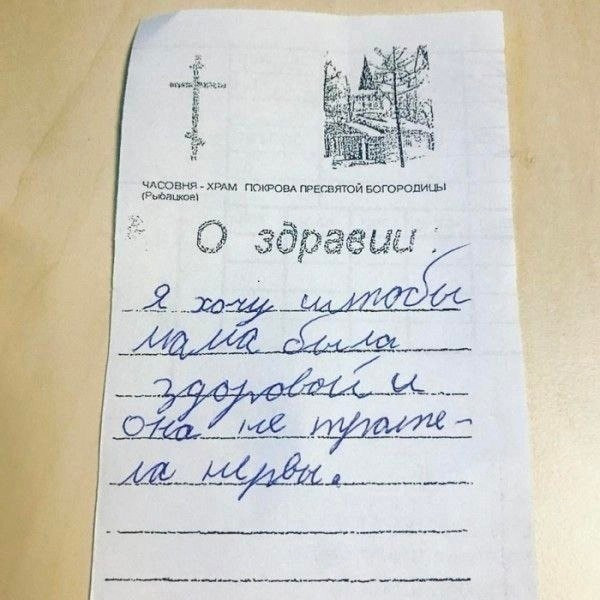 ЧАСОВНЯ - ХРАМ ПОКРОВА ПРЕСВЯТОЙ БОГОРОДИЦЫ
(Рыбацкое)
О здравии:
Я хочу штобы
мама была
здоровой и
она не трате-
ла нервы.